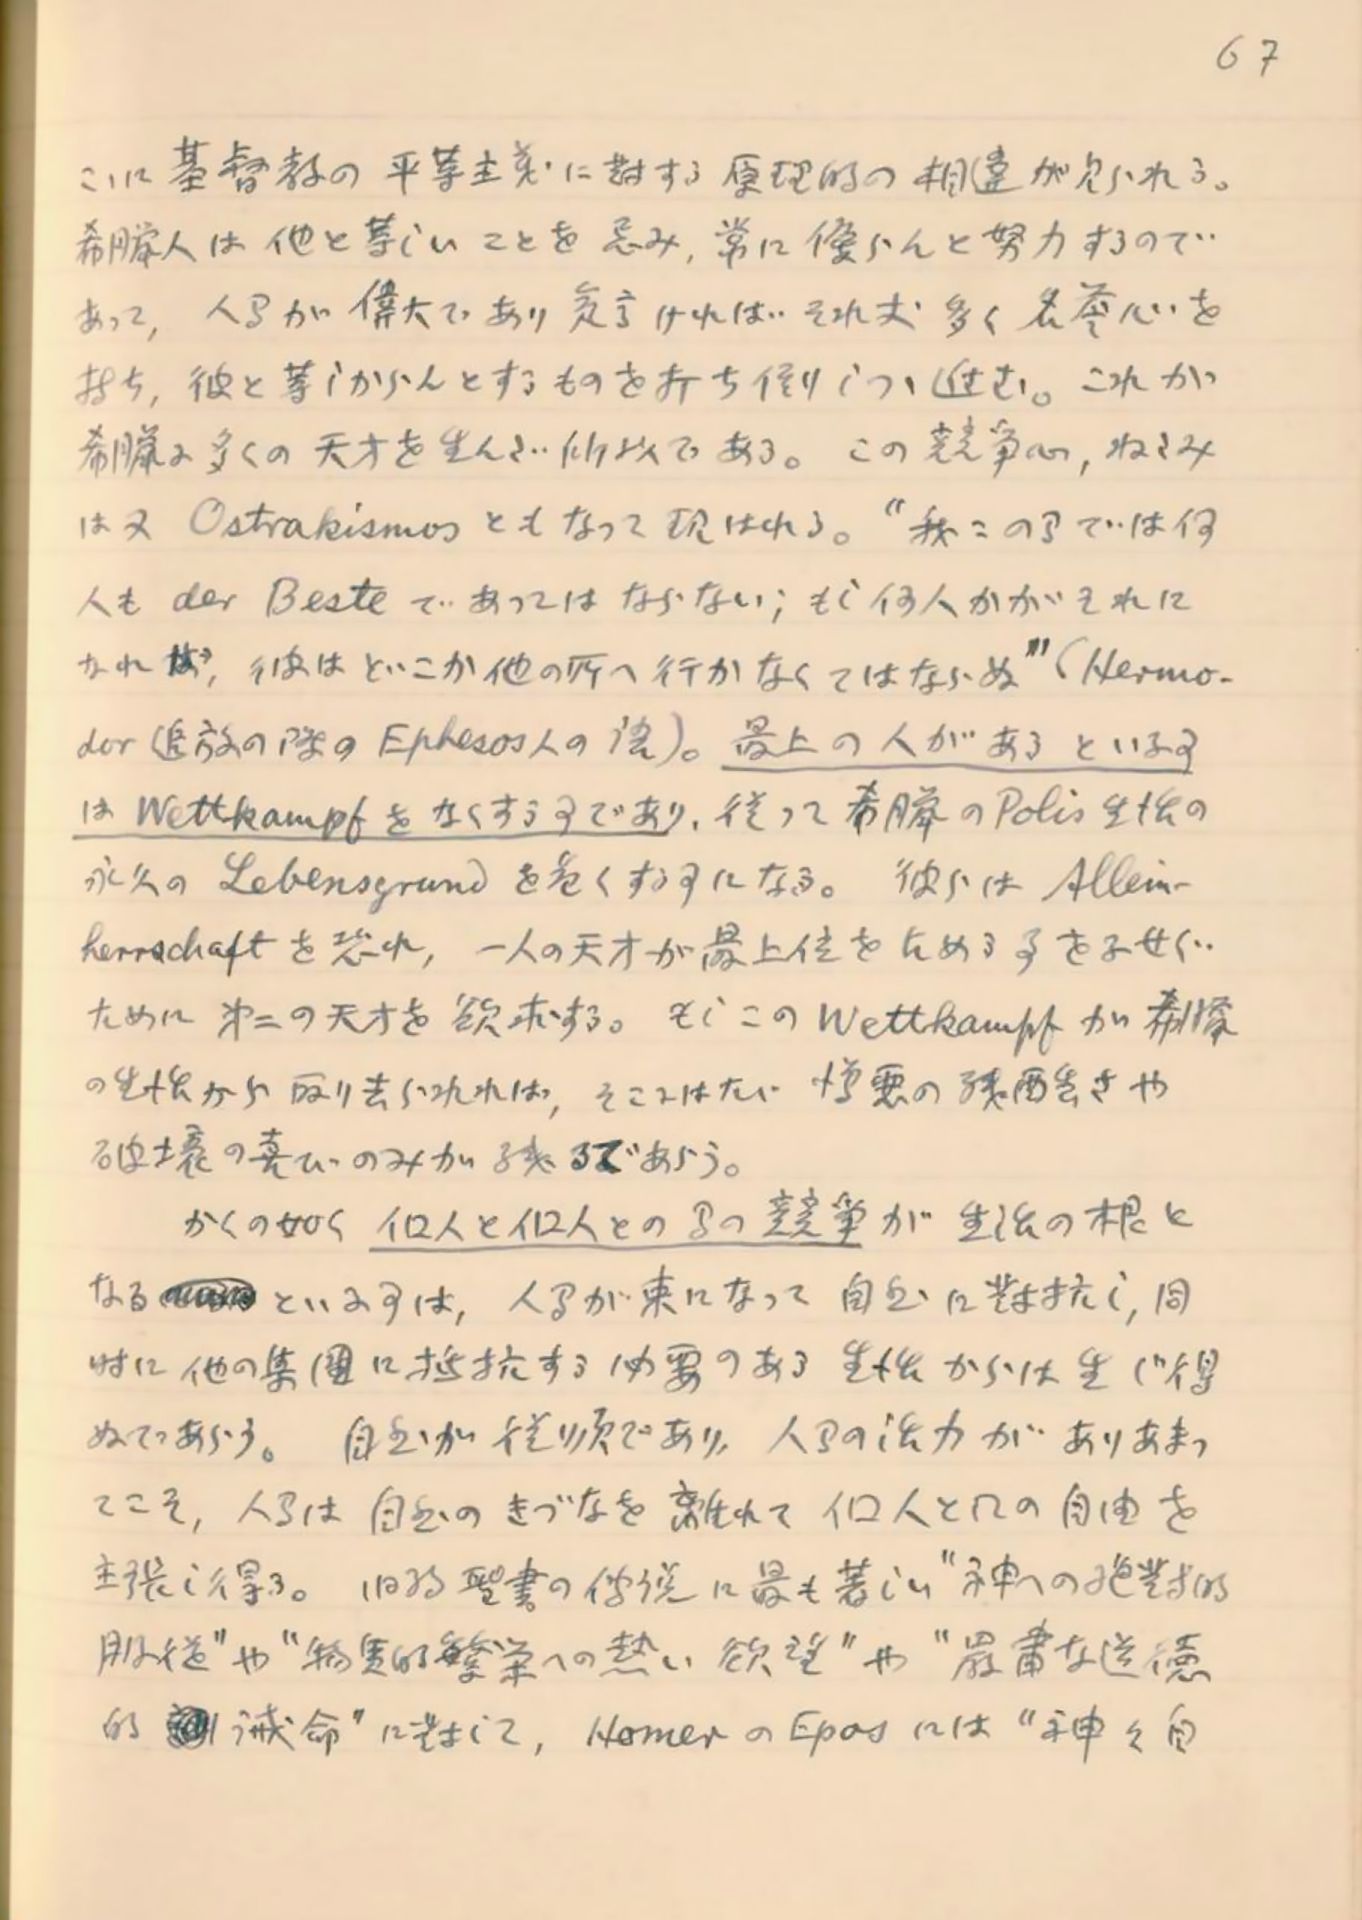 67
こゝに基督教の平等主義に對する原理的の相違が見られる。
希臘人は他と等しいことを忌み, 常に優らんと努力するので
あって, 人間が偉大であり ければそれ丈多く名誉心を
持ち, 彼と等しからんとするものを打ち倒しつゝ進む。これが
希臘に多くの天才を生んだ所以である。この競争心, ねたみ
は又 Ostrakismos ともなって現はれる。“我々の間では何
人も der Beste であってはならない; もし何人かがそれに
なれば, 彼はどこか他の所へ行かなくてはならぬ”(Hermo-
dor 追放の際の Ephesos人の言)。最上の人があるといふ事
は Wettkampf をなくする事であり, 従って希臘のPolis生活の
永久の Lebensgrund を危くする事になる。 彼らは Allein-
herrschaft を恐れ, 一人の天才が最上位を占める事をふせぐ
ために 第二の天才を欲求する。もしこの Wettkampf が希臘
の生活から取り去られれば, そこにはたゞ憎悪の残酷さや
破壊の喜びのみが残るであらう。
かくの如く 個人と個人との間の競争が生活の根と
なるといふ事は, 人間が束になって自然に對抗し, 同
時に他の集團に抵抗する必要のある生活からは生じ得
ぬであらう。 自然が従順であり, 人間の活力がありあまっ
てこそ, 人間は自然のきづなを離れて個人としての自由を
主張し得る。旧約聖書の傳説に最も著しい“神への絶對的
服従”や“物質的繁栄への熱い欲望”や“嚴肅な道徳
的誡命”に對して, Homer の Epos には“神々自